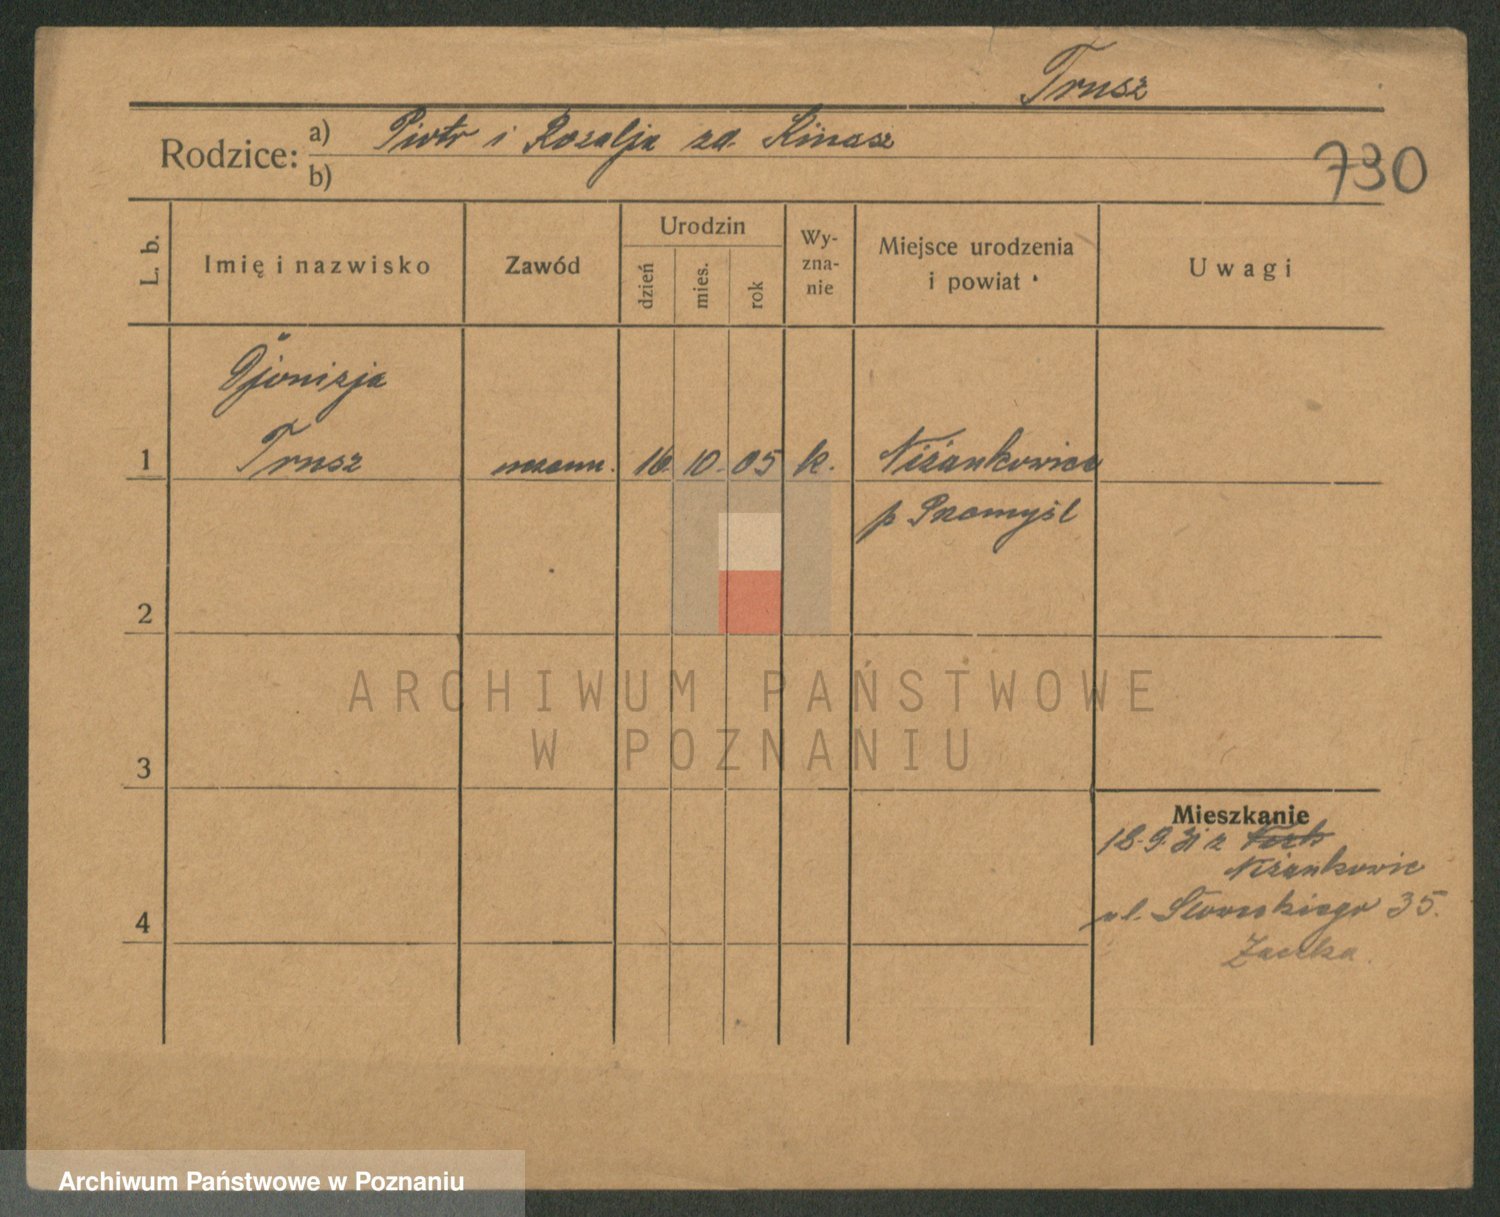 Trusz
Rodzice: a) Piotr i Rozalja zd. Kinasz
b)
730
L. b.
Imię i nazwisko
Zawód
Urodzin
dzień
mies.
rok
Wy-
zna-
nie
Miejsce urodzenia
i powiat
Uwagi
Djonizja
1 Trusz 16. 10. 05 k. Niżankowice
p Przemyśl
2
ARCHIWUM PAŃSTWOWE
W POZNANIU
3
Mieszkanie
18.9.31 z
Niżankowic
4
ul. Słowackiego 35.
Archiwum Państwowe w Poznaniu